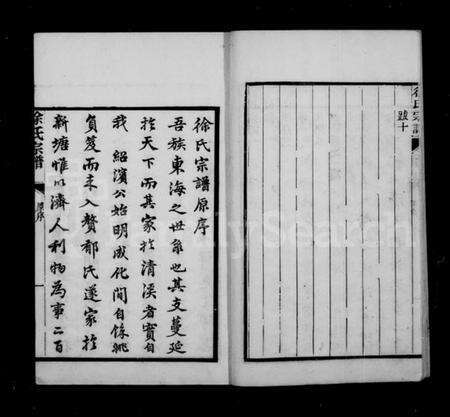 徐氏宗譜
跋十
徐氏宗譜原序
吾族東海之世系也其支蔓延
於天下而其家於清溪者實自
我 紹濱公始明成化間自餘姚
負笈而來入贅郁氏遂家於
新塘惟以濟人利物為事二百
徐氏宗譜
FamilySearch